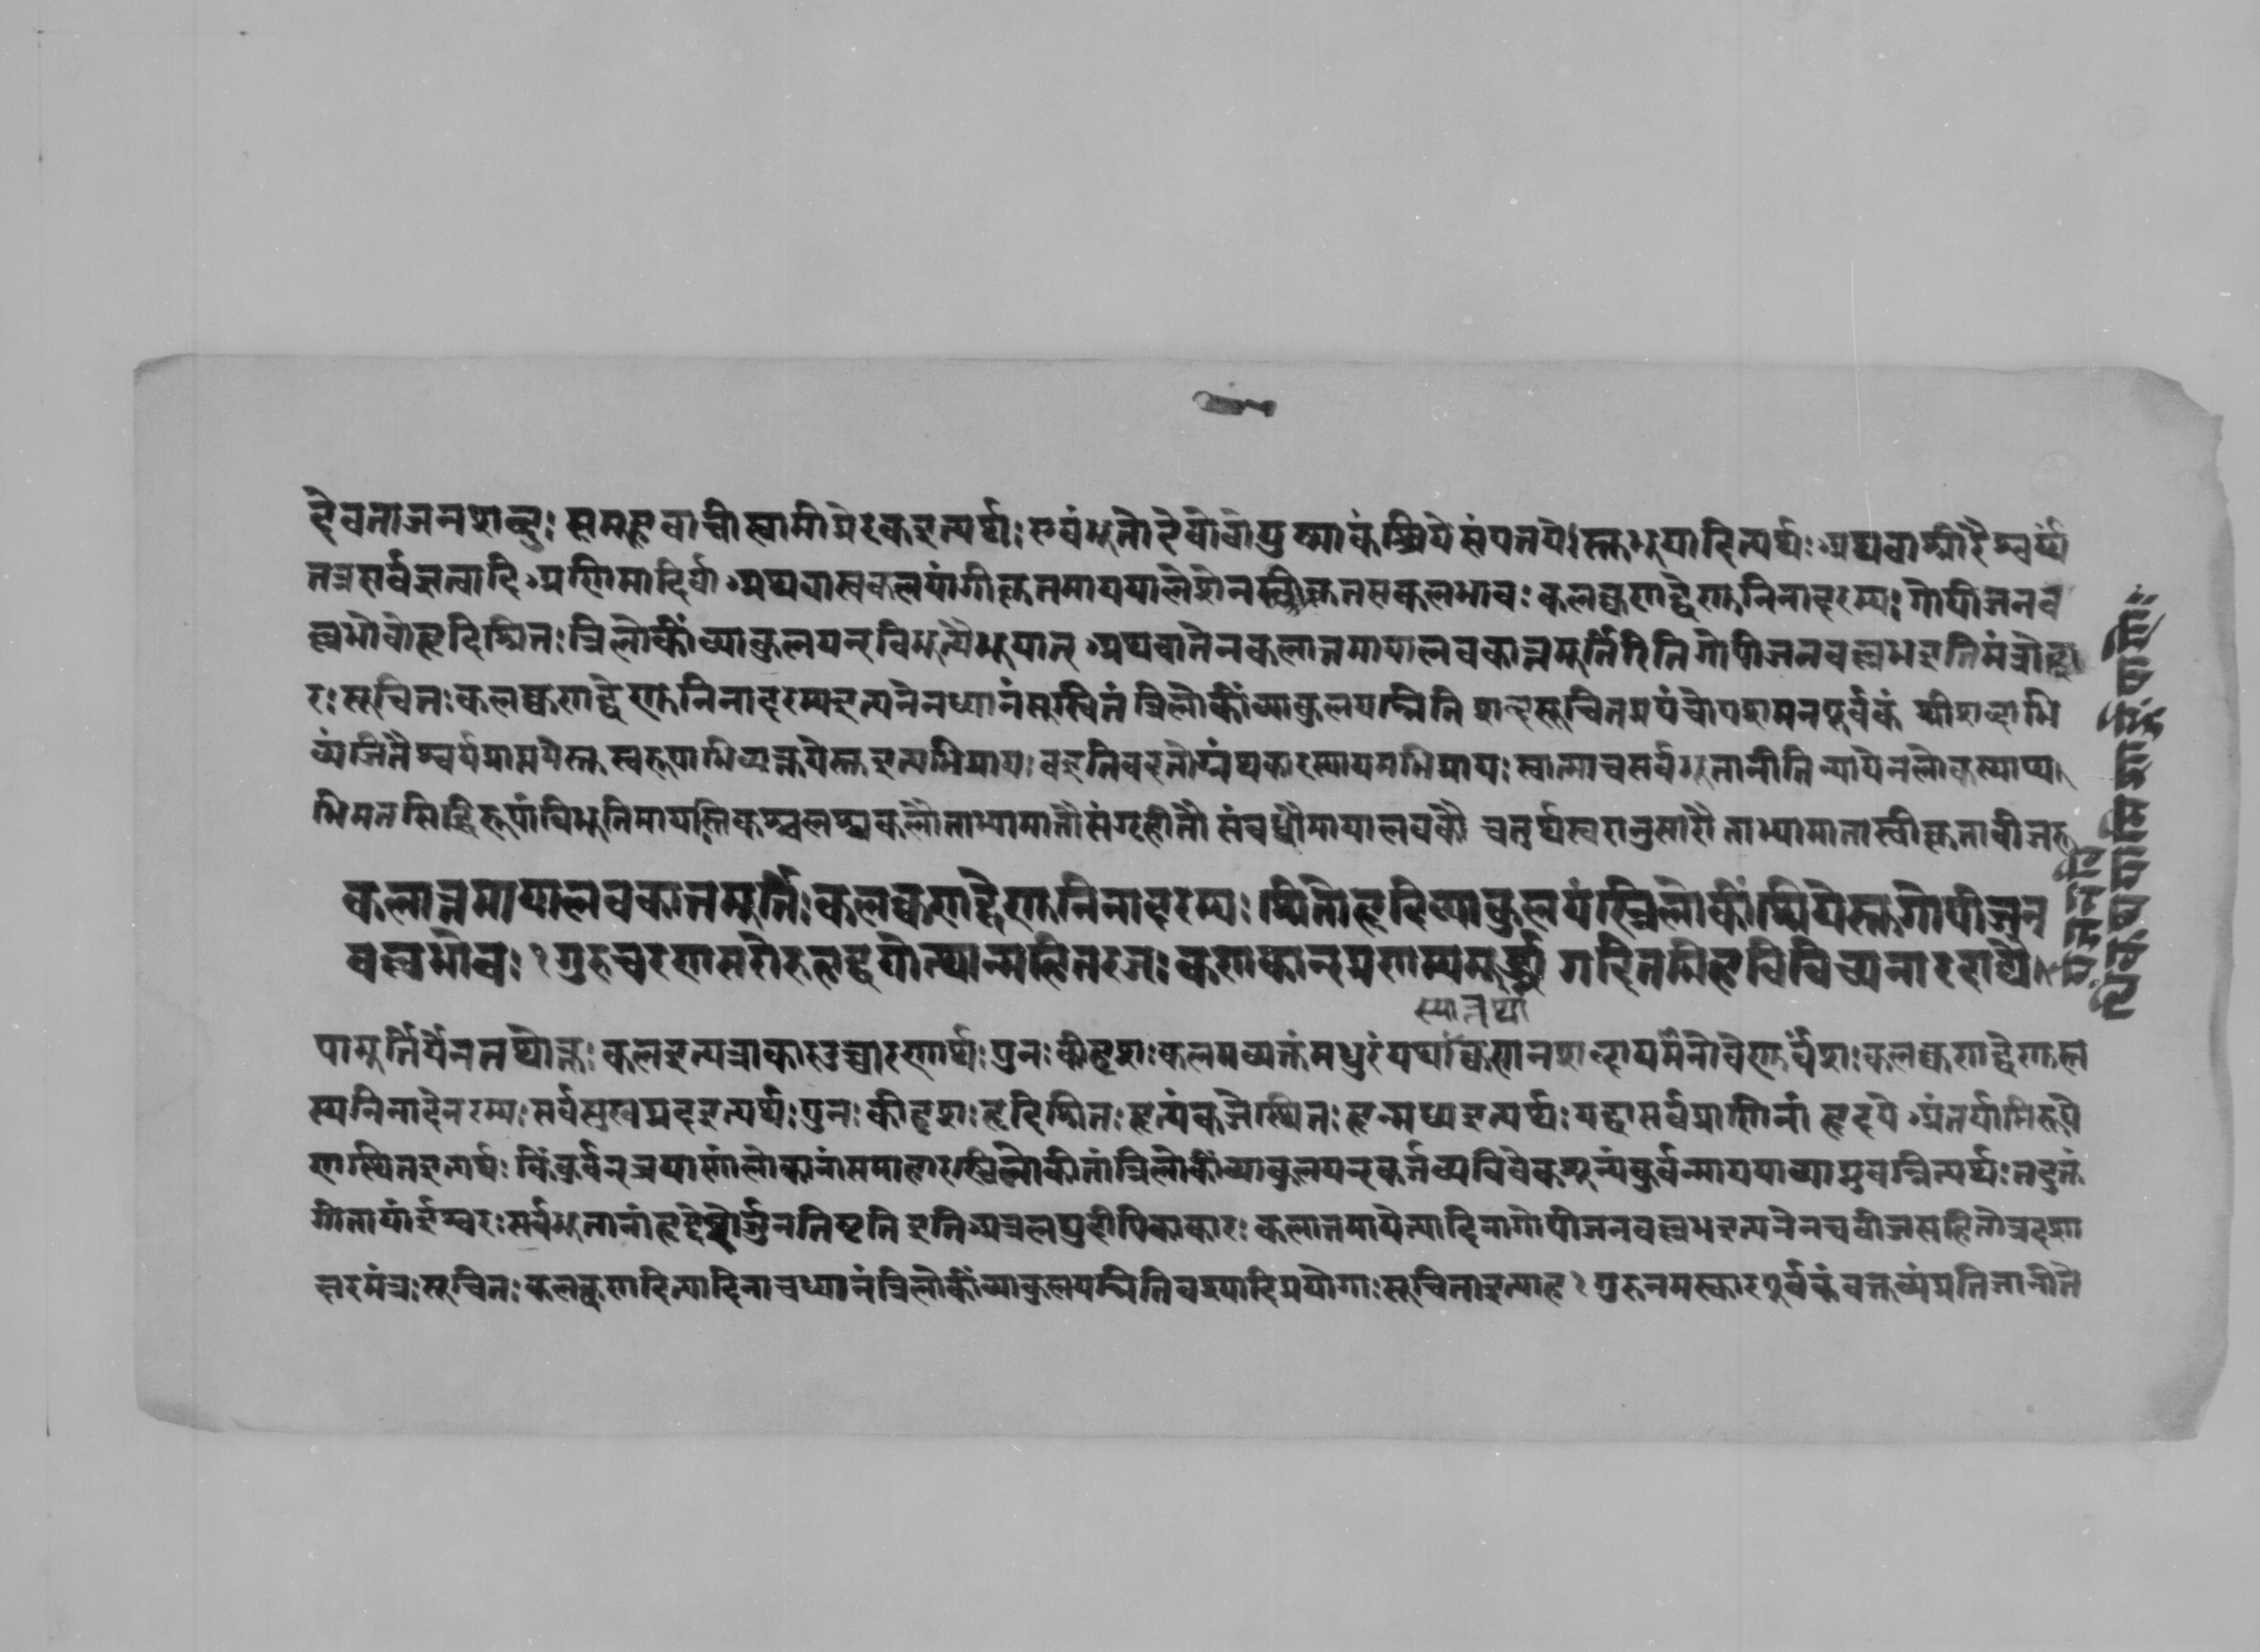 देवताजनशब्दः समूहवाची स्वामी प्रेरक इत्यर्थः एवंभूतो देवो वो युष्माकं श्रियै संपत्तयेऽस्तु भूयादित्यर्थः अथवा श्रीरैश्वर्यं
तत्र सर्वज्ञत्वादि अणिमादिर्वा अथवा स्वकलयांगीकृतमायया लेशेन स्वीकृतसकलभावः कलक्वणद्वेणुनिनादरम्यः गोपीजनव
ल्लभो वो हृदि श्रितः त्रिलोकीं व्याकुलयन् विभूत्यै भूयात् अथवानेन कलात्तमायालवकात्तमूर्तिरिति गोपीजनवल्लभ इति मंत्रोद्धा
रः सूचितः कलक्वणद्वेणुनिनादरम्य इत्यनेन ध्यानं सूचितं त्रिलोकीं व्याकुलयन्निति शब्दसूचितप्रपंचोपशमनपूर्वकं श्रीशब्दाभि
व्यंजितैश्वर्यप्राप्तयेस्तु स्वरूपाभिव्यक्तयेस्तु इत्यभिप्रायः व इति वदतो ग्रंथकारस्यायमभिप्रायः स्वात्मा च सर्वभूतानीति न्यायेन लोकस्याप्य
भिमतसिद्धिरूपां विभूतिमाशास्ति कश्च लश्च कलौ ताभ्यामात्तौ संगृहीतौ संबद्धौ मायालवकौ चतुर्थस्वरानुसारौ ताभ्यामात्ता स्वीकृता बीजरू
कलात्तमायालवकात्तमूर्तिः कलक्वणद्वेणुनिनादरम्यः श्रितो हृदि व्याकुलयंस्त्रिलोकीं श्रियेस्तु गोपीजन
वल्लभो वः १ गुरुचरणसरोरुहद्वयोत्थान्महितरजः कणकान् प्रणम्य मूर्ध्ना गदितमिह विविच्य नारदाद्यै
स्यात्तथा
पा मूर्तिर्येन तथोक्तः कल इत्यत्राकार उच्चारणार्थः पुनः कीदृशः कलमव्यक्तं मधुरं यथा क्वणन् शब्दायमानो वेणुर्वंशः कलक्वणद्वेणुस्त
स्य निनादेन रम्यः सर्वसुखप्रद इत्यर्थः पुनः कीदृशः हृदि श्रितः हृत्पंकजे स्थितः हृन्मध्य इत्यर्थः यद्वा सर्वप्राणिनां हृदये अंतर्यामिरूपे
ण स्थित इत्यर्थः किं कुर्वन् त्रयाणां लोकानां समाहारस्त्रिलोकी तां त्रिलोकीं व्याकुलयन् कर्तव्यविवेकशून्यं कुर्वन्मायया व्यामुवन्नित्यर्थः तदुक्तं
गीतायां ईश्वरः सर्वभूतानां हृद्देशेर्जुन तिष्ठति इति अत्र लघुदीपिकाकारः कलात्तमायेत्यादिना गोपीजनवल्लभ इत्यनेन च बीजसहितो दशा
क्षरमंत्रः सूचितः कलक्वणदित्यादिना च ध्यानं त्रिलोकीं व्याकुलयन्निति वश्यादिप्रयोगाः सूचिता इत्याह १ गुरुनमस्कारपूर्वकं वक्तव्यं प्रतिजानीते